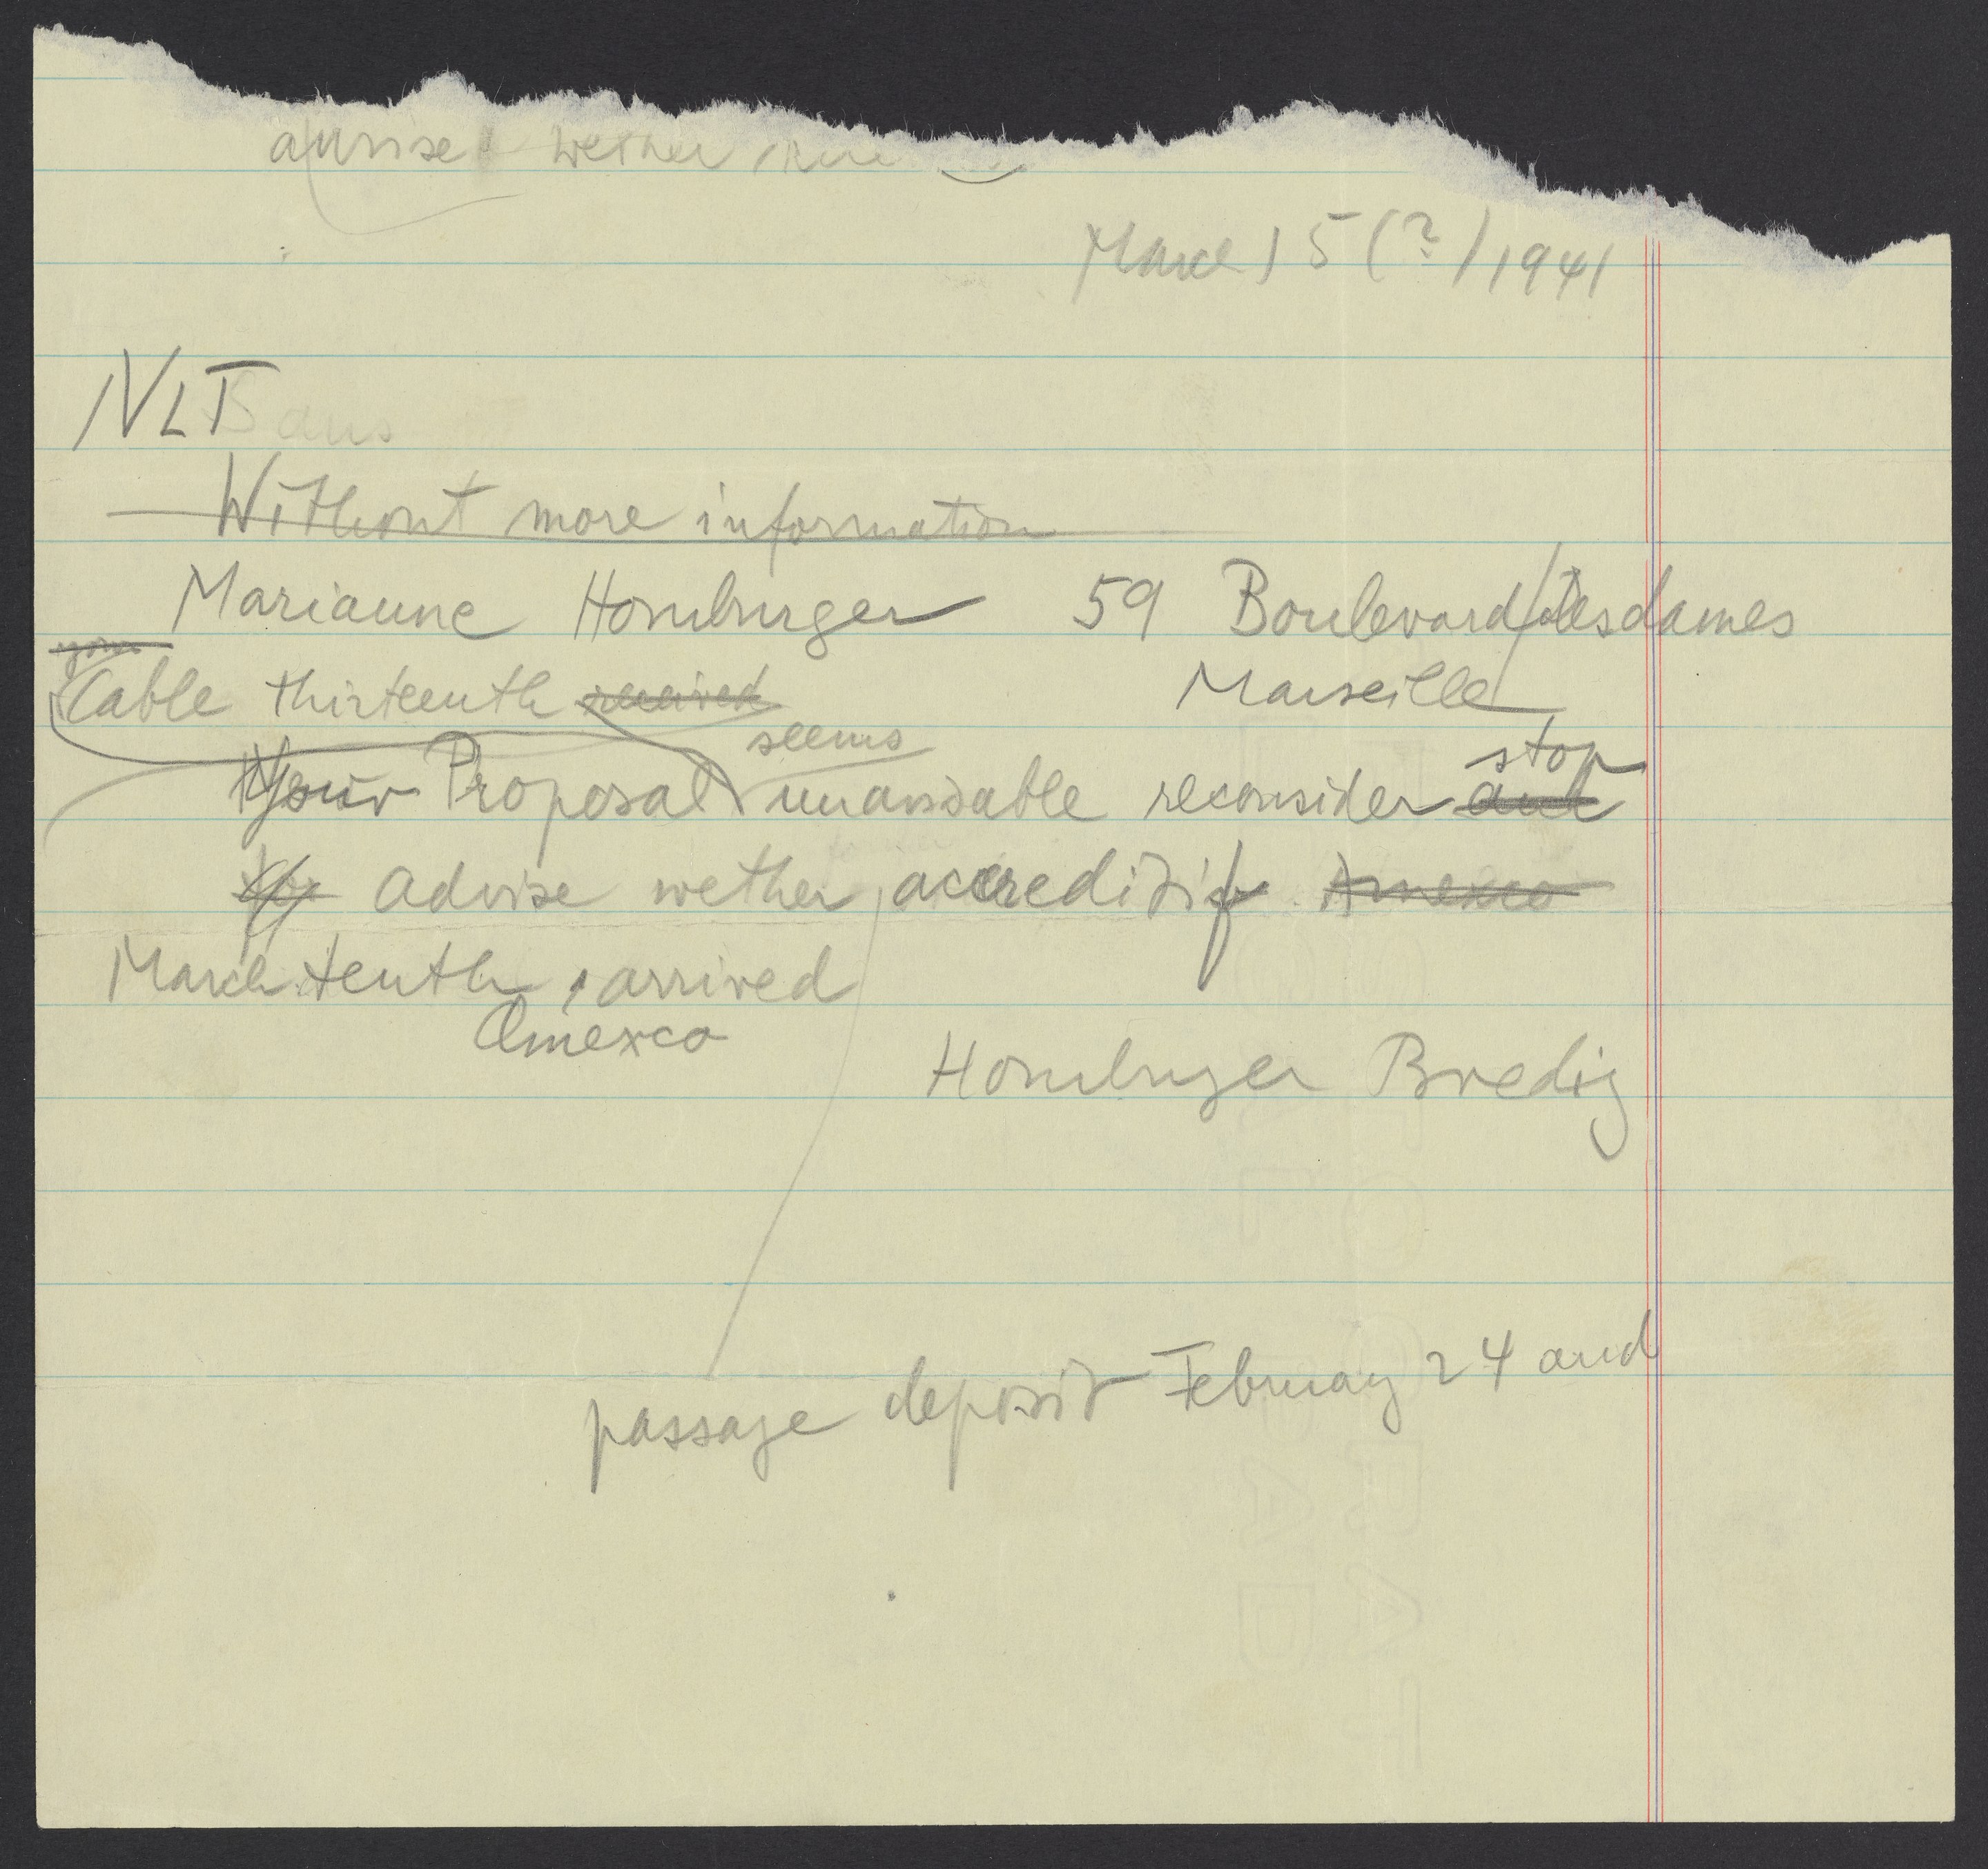 advise wether
March 15 (?) 1941
NLT
Without more information
Marianne Homburger 59 Boulevard desdames
your
Cable thirteenth received Marseille
seems stop
Your Proposal unansable reconsider and
Advise wether accreditif Amexco
March tenth arrived
Amexco
Homburger Bredig
passage deposit February 24 and